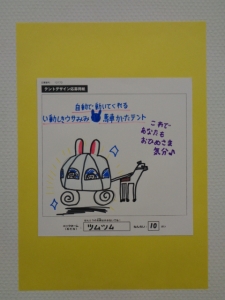 テントデザイン応募用紙
自動で動いてくれる
い動しきウサみみ 馬車がたテント
これで
あなたも
おひめさま
気分♪
ツムツム
10